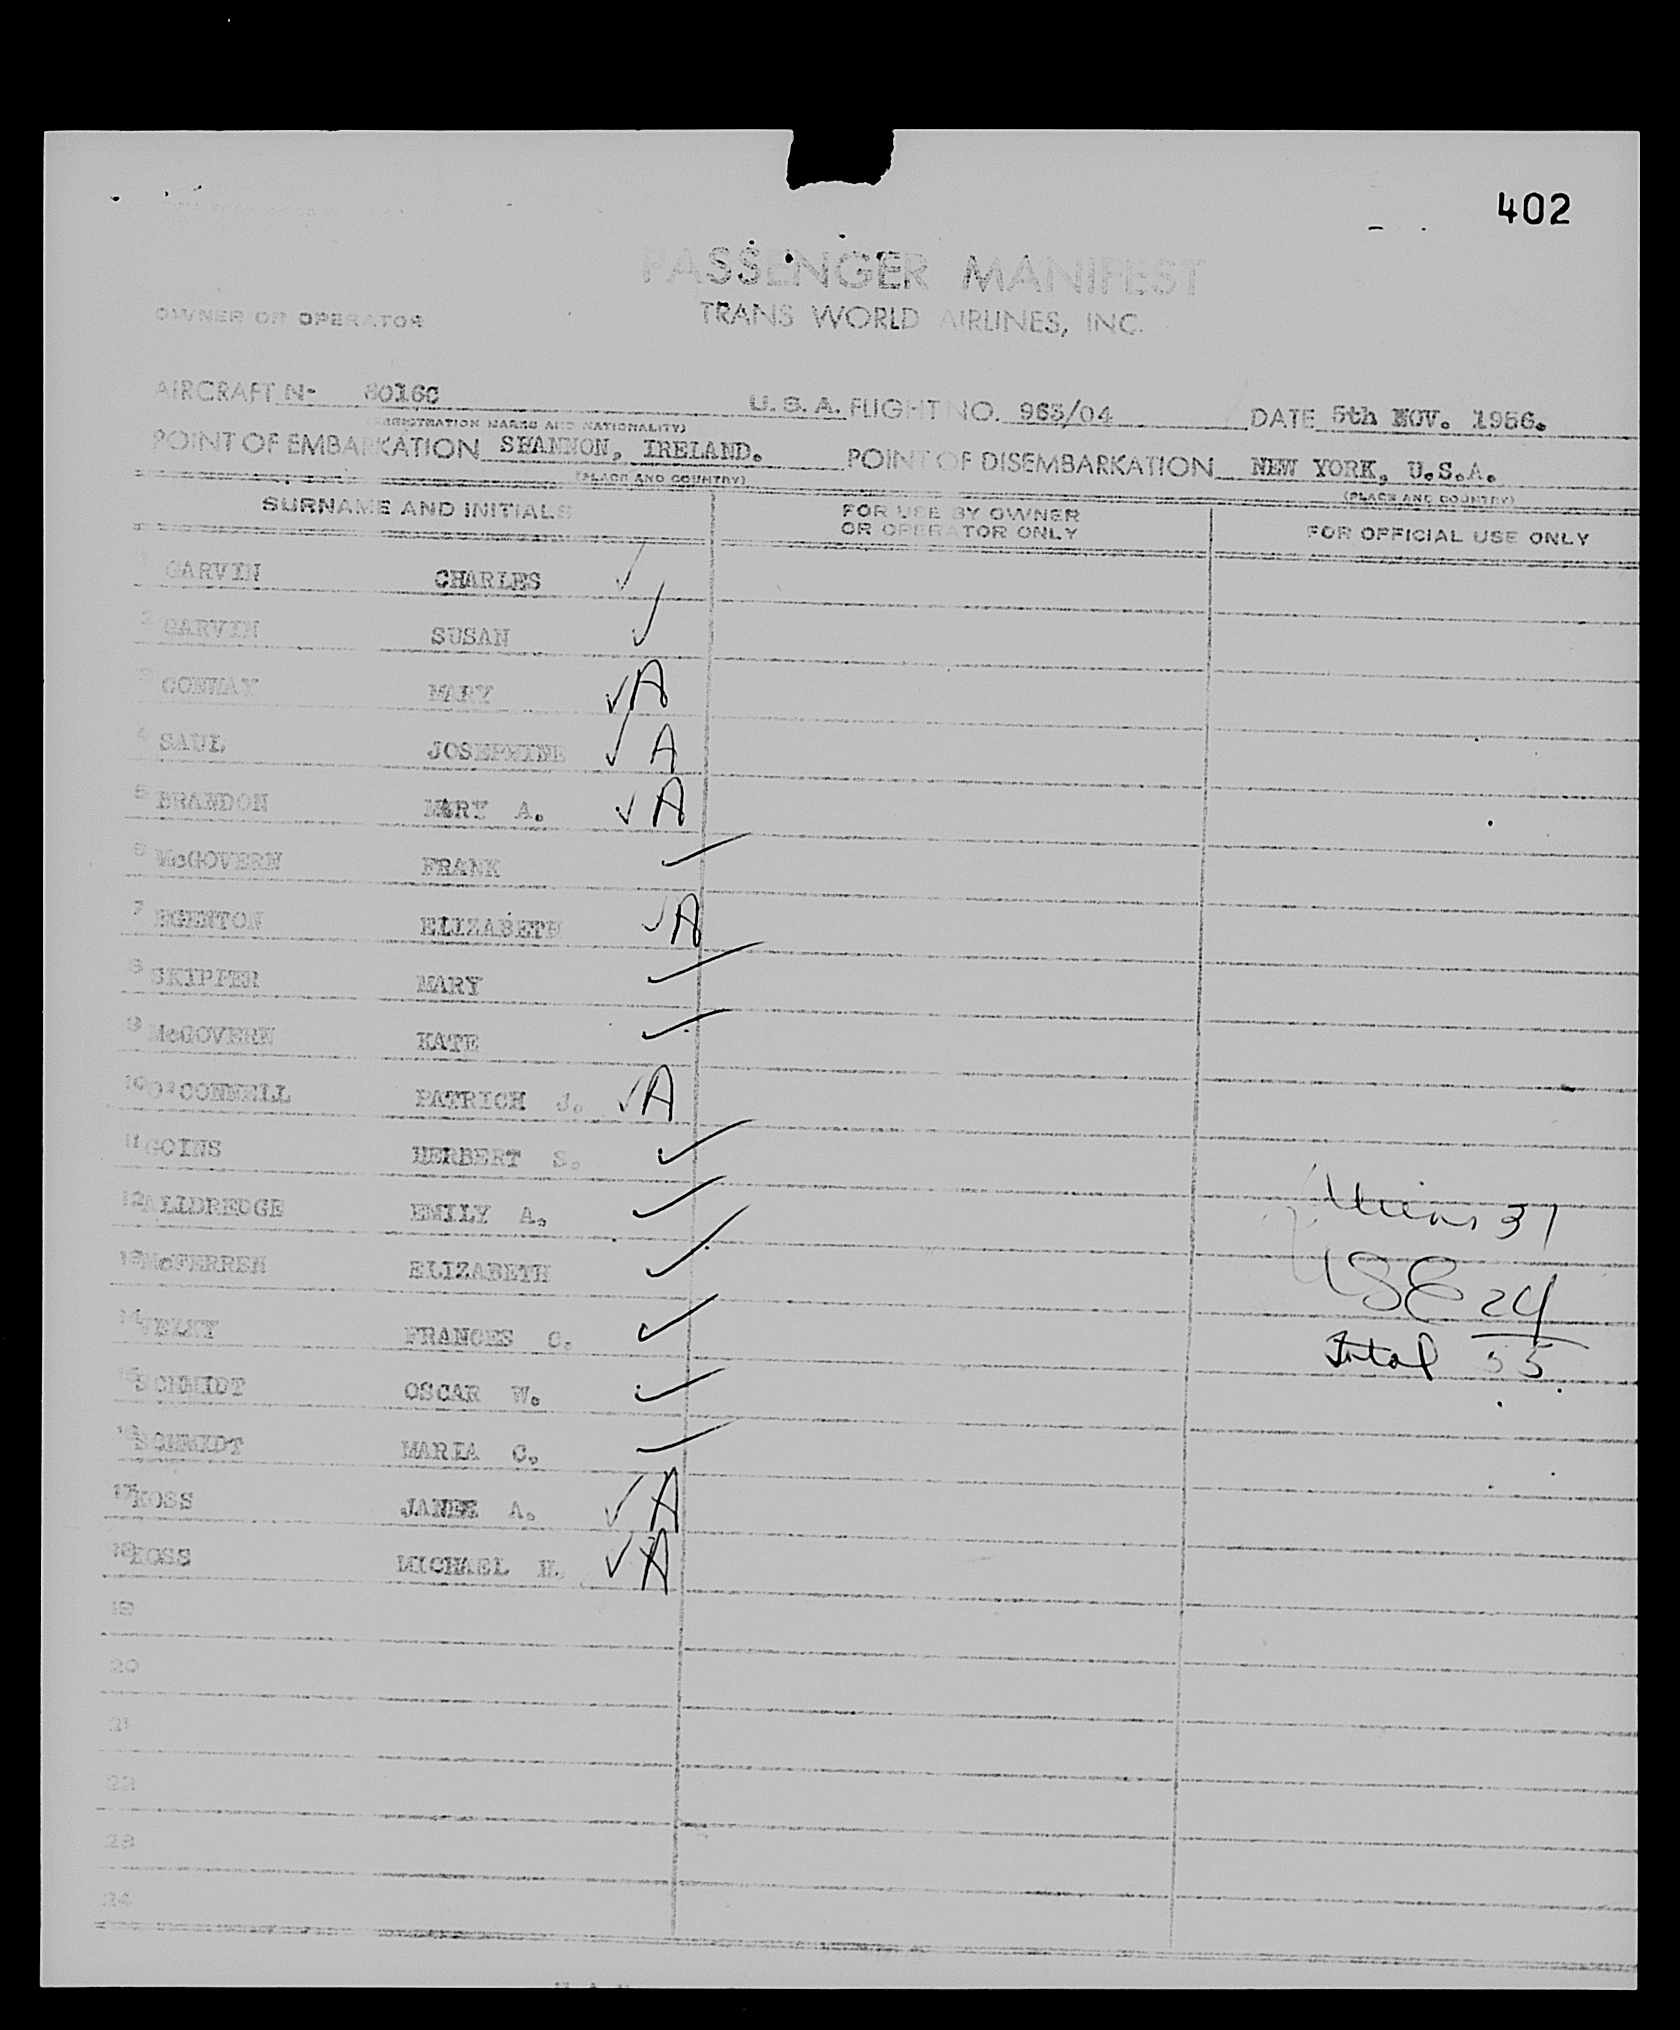 402
PASSENGER MANIFEST
OWNER OR OPERATOR TRANS WORLD AIRLINES, INC.
AIRCRAFT N- 6016C U.S.A. FLIGHT NO. 963/04 DATE 5th NOV. 1956.
(REGISTRATION MARKS AND NATIONALITY)
POINT OF EMBARKATION SHANNON, IRELAND. POINT OF DISEMBARKATION NEW YORK, U.S.A.
(PLACE AND COUNTRY) (PLACE AND COUNTRY)
SURNAME AND INITIALS FOR USE BY OWNER OR OPERATOR ONLY FOR OFFICIAL USE ONLY
1 GARVIN CHARLES ✓
2 GARVIN SUSAN ✓
3 CONWAY MARY ✓ A
4 SAUL JOSEPHINE ✓ A
5 BRANDON MARY A. ✓ A
6 McGOVERN FRANK ✓
7 EGERTON ELIZABETH ✓ A
8 SKIPPER MARY ✓
9 McGOVERN KATE ✓
10 O'CONNELL PATRICH J. ✓ A
11 GOINS HERBERT S. ✓
12 ALLDREDGE EMILY A. ✓
13 McFERREN ELIZABETH ✓
14 FRANCES C. ✓
15 SCHMIDT OSCAR W. ✓
16 SCHMIDT MARIA C. ✓
17 KOSS A. ✓ A
18 KOSS MICHAEL H. ✓ A
19
20
21
22
23
24
Aliens 31
USC 24
Total 55